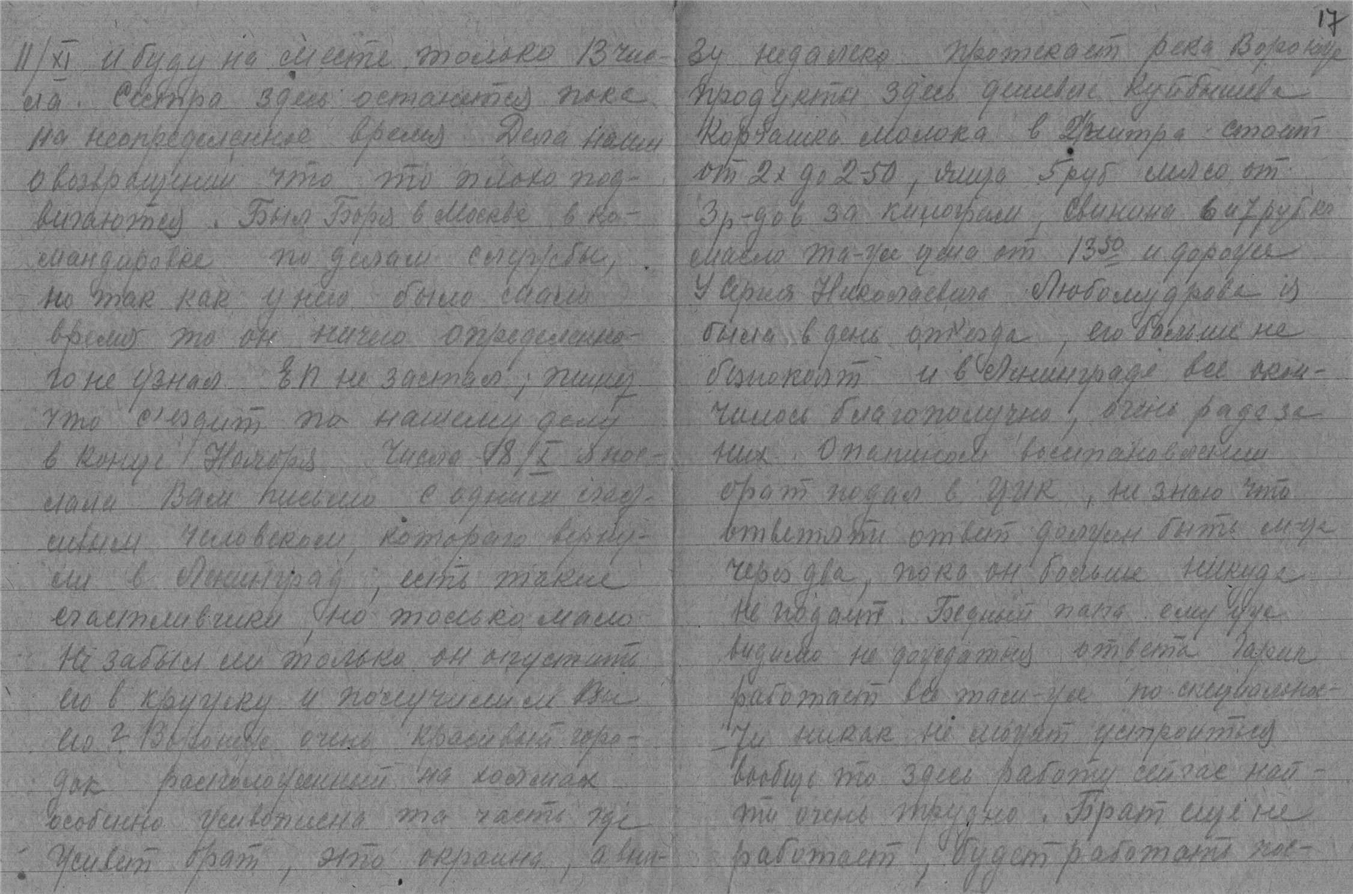 11/XI и буду на месте только 13 чис-
ла. Сестра здесь остается пока
на неопределенное время Дела наши
о возвращении что то плохо под-
вигаются. Был Боря в Москве в ко-
мандировке по делам службы,
но так как у него было мало
время то он ничего определенно-
го не узнал ЕП не застал, пишу
что съездит по нашему делу
в конце Ноября Числа 18/X я пос-
лала Вам письмо с одним счаст-
ливым человеком, которого верну-
ли в Ленинград, есть такие
счастливчики, но только мало
Не забыл ли только он опустить
его в кружку и получили ли Вы
его? Воронеж очень красивый горо-
док расположенный на холмах
особенно живописна та часть где
живет брат, это окраина, а вни-
17
зу недалеко протекает река Воронеж
продукты здесь дешевле Куйбышева
молока в стоит
от 2х до 2-50, яйца 5 руб мясо от
3р-до 6 за килограм, свинина 6 и 7 руб ко
масло та-же цена от 13 50 и дороже
У Николаевича Любомудрова я
была в день отъезда, его больше не
безпокоят и в Ленинграде все окон-
чилось благополучно, очень рада за
них. О папином восстановлении
брат подал в ЦИК, не знаю что
ответят ответ должен быть м-ца
через два, пока он больше никуда
не подает. Бедный папа ему уже
видимо не дождаться ответа
работает все там-же по специальнос-
ти никак не может устроиться
вообще то здесь работу сейчас най-
ти очень трудно. Брат еще не
работает, будет работать пос-